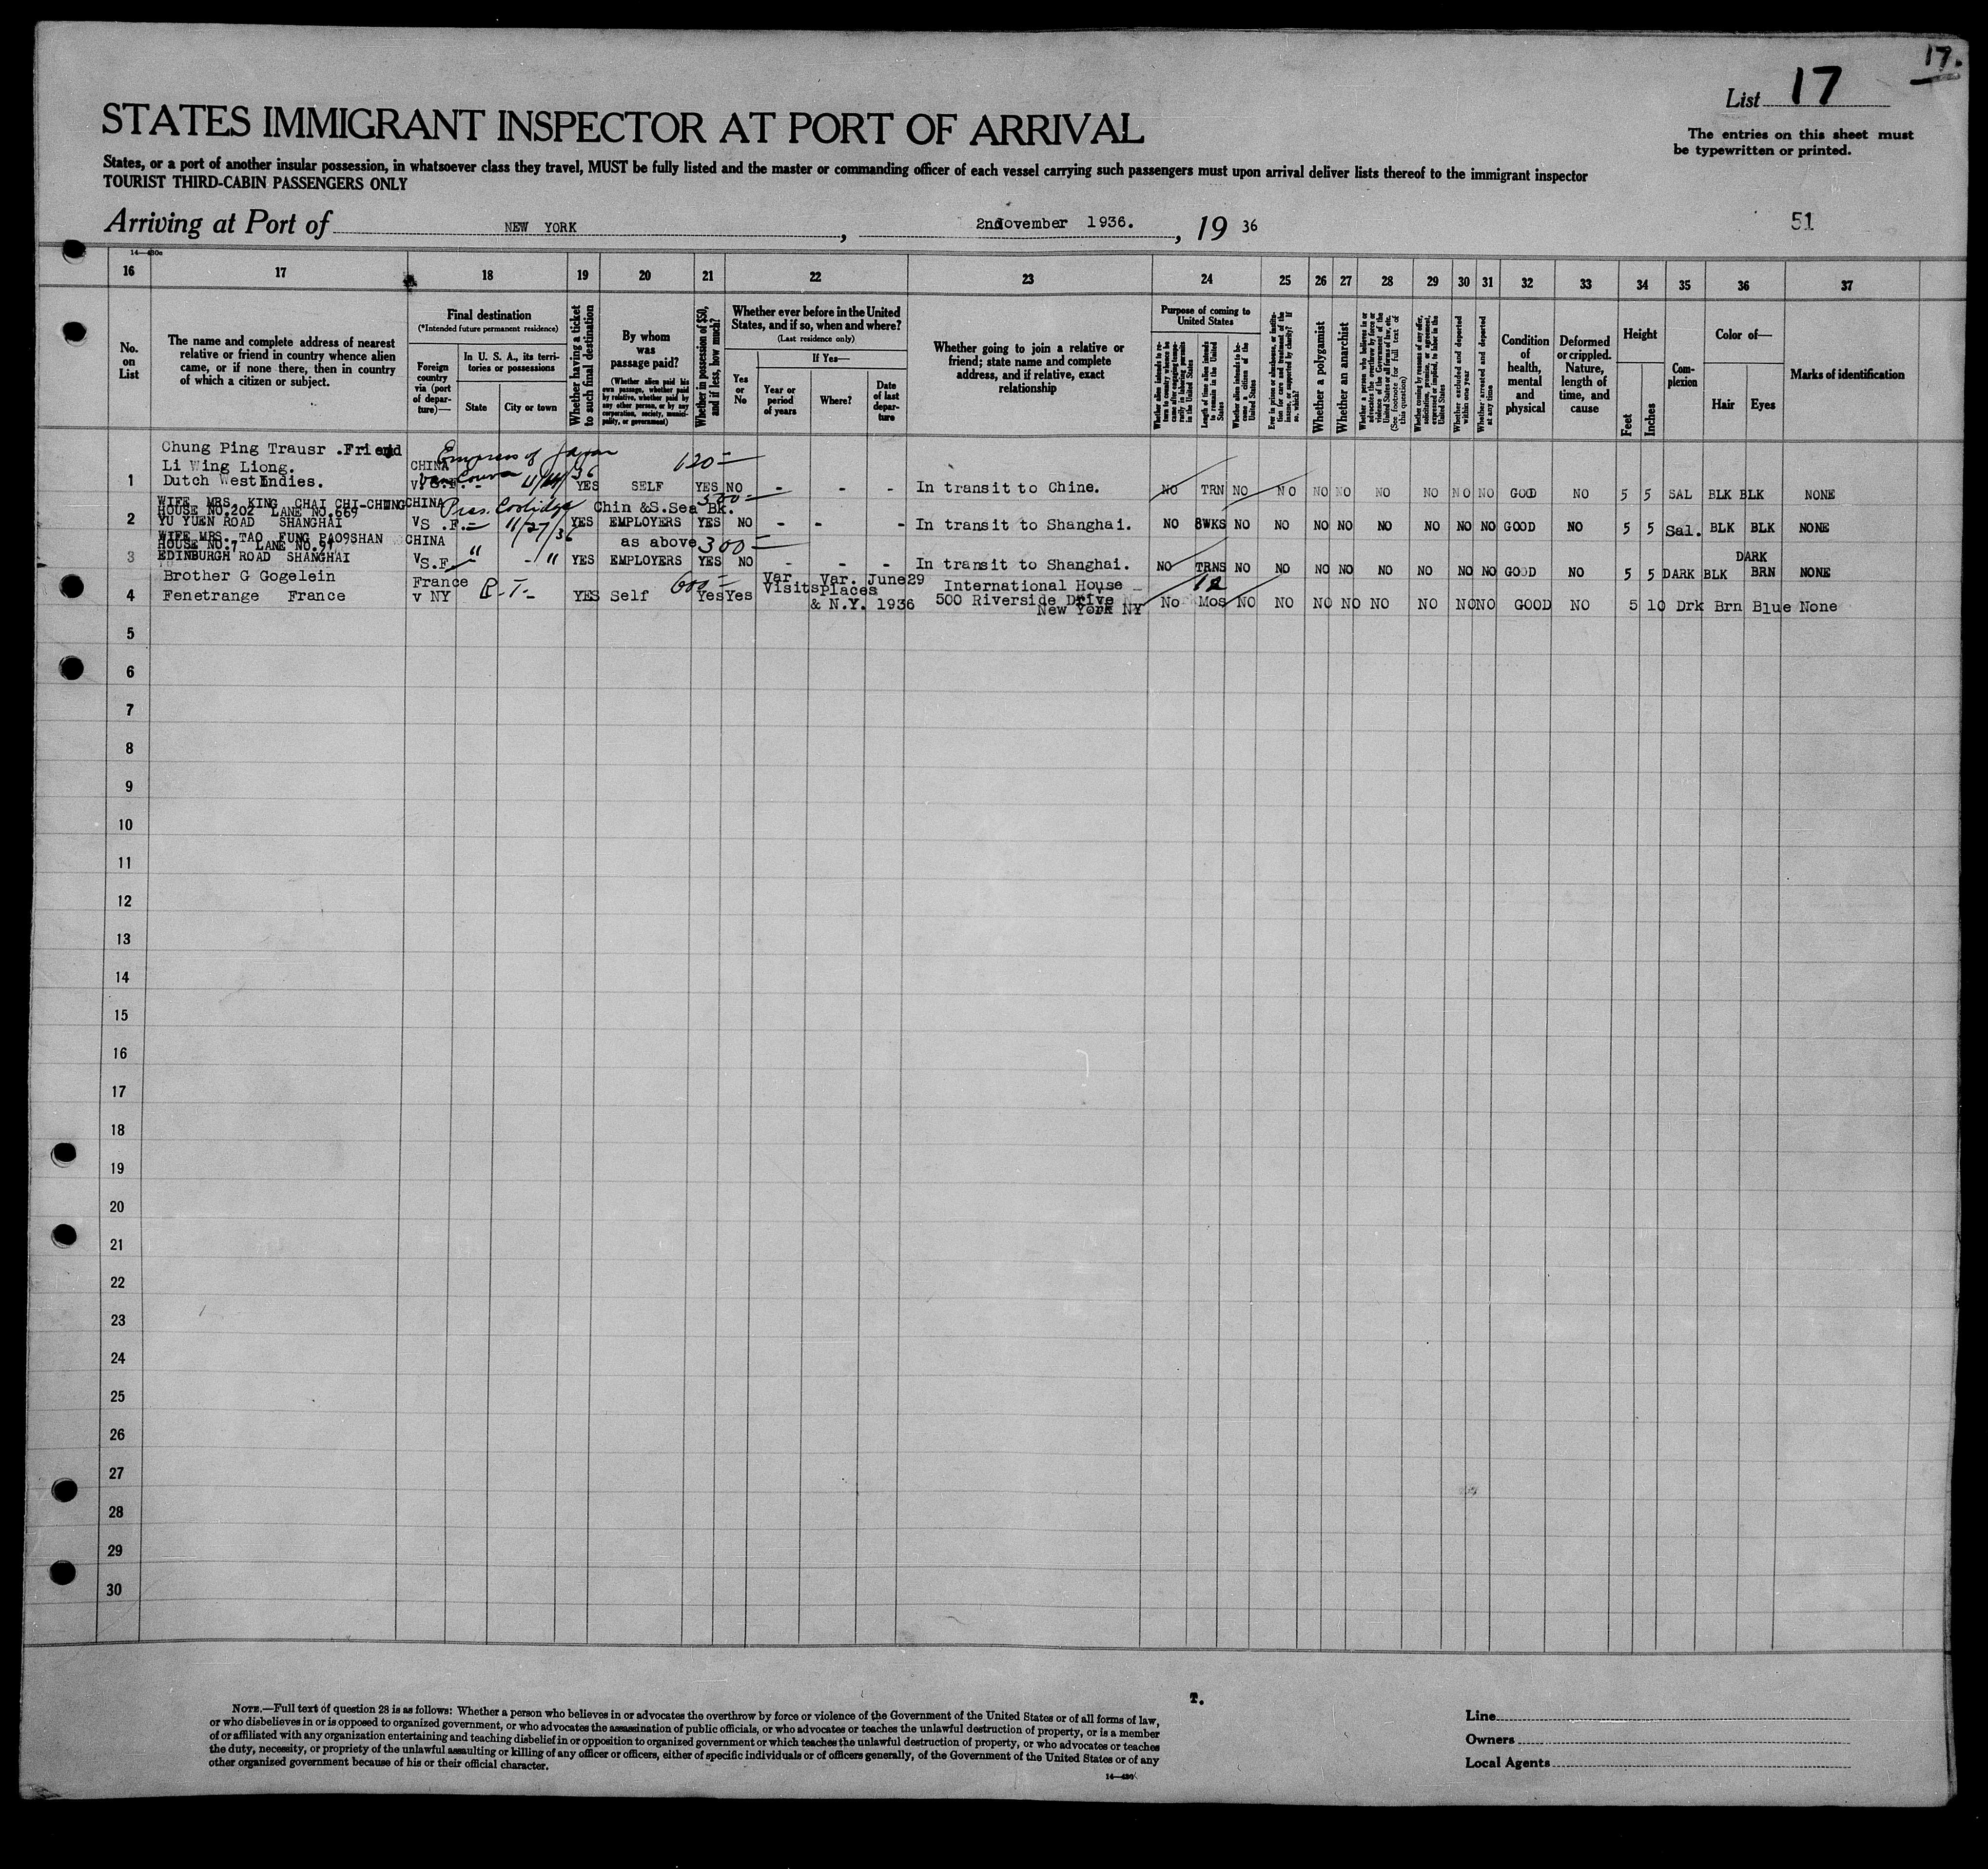 17.
List 17
STATES IMMIGRANT INSPECTOR AT PORT OF ARRIVAL
The entries on this sheet must
be typewritten or printed.
States, or a port of another insular possession, in whatsoever class they travel, MUST be fully listed and the master or commanding officer of each vessel carrying such passengers must upon arrival deliver lists thereof to the immigrant inspector
TOURIST THIRD-CABIN PASSENGERS ONLY
Arriving at Port of NEW YORK, 2nd November 1936., 19 36
51
14—430c
16 17 18 19 20 21 22 23 24 25 26 27 28 29 30 31 32 33 34 35 36 37
No. on List
The name and complete address of nearest relative or friend in country whence alien came, or if none there, then in country of which a citizen or subject.
Final destination
(*Intended future permanent residence)
Foreign country via (port of departure)—
In U. S. A., its territories or possessions
State
City or town
Whether having a ticket to such final destination
By whom was passage paid?
(Whether alien paid his own passage, whether paid by relative, whether paid by any other person, or by any corporation, society, municipality, or government)
Whether in possession of $50, and if less, how much?
Whether ever before in the United States, and if so, when and where?
(Last residence only)
Yes or No
If Yes—
Year or period of years
Where?
Date of last departure
Whether going to join a relative or friend; state name and complete address, and if relative, exact relationship
Purpose of coming to United States
Length of time alien intends to remain in the United States
Whether alien intends to become a citizen of the United States
Whether a polygamist
Whether an anarchist
Whether excluded and deported within one year
Whether arrested and deported at any time
Condition of health, mental and physical
Deformed or crippled. Nature, length of time, and cause
Height
Feet
Inches
Complexion
Color of—
Hair
Eyes
Marks of identification
Chung Ping Trausr .Friend
Empress of Japan
120—
Li Wing Liong. CHINA
Vancouver
1 Dutch West Indies. V.S.F.- YES SELF YES NO - - - In transit to Chine. NO TRN NO NO NO NO NO NO NO NO GOOD NO 5 5 SAL BLK BLK NONE
WIFE MRS. KING CHAI CHI-CHUNG CHINA Pres. Coolidge Chin &S.Sea Bk. 500—
HOUSE NO.202 LANE NO.669
2 YU YUEN ROAD SHANGHAI VS .F.— 11/27/36 YES EMPLOYERS YES NO - - - In transit to Shanghai. NO 8WKS NO NO NO NO NO NO NO NO GOOD NO 5 5 Sal. BLK BLK NONE
WIFE MRS. TAO FUNG PAO9SHAN CHINA as above 300—
HOUSE NO.7 LANE NO.91
3 EDINBURGH ROAD SHANGHAI VS.F. " " YES EMPLOYERS YES NO - - - In transit to Shanghai. NO TRNS NO NO NO NO NO NO NO NO GOOD NO 5 5 DARK BLK DARK BRN NONE
Brother G Gogelein France R.T.- 600— Var. Visits Var. Places June29 International House 12
4 Fenetrange France v NY YES Self Yes Yes & N.Y. 1936 500 Riverside Drive No Mos NO NO NO NO NO NO NO NO GOOD NO 5 10 Drk Brn Blue None
New York NY
5
6
7
8
9
10
11
12
13
14
15
16
17
18
19
20
21
22
23
24
25
26
27
28
29
30
T.
NOTE.—Full text of question 28 is as follows: Whether a person who believes in or advocates the overthrow by force or violence of the Government of the United States or of all forms of law,
or who disbelieves in or is opposed to organized government, or who advocates the assassination of public officials, or who advocates or teaches the unlawful destruction of property, or is a member
of or affiliated with any organization entertaining and teaching disbelief in or opposition to organized government or which teaches the unlawful destruction of property, or who advocates or teaches
the duty, necessity, or propriety of the unlawful assaulting or killing of any officer or officers, either of specific individuals or of officers generally, of the Government of the United States or of any
other organized government because of his or their official character.
14—430
Line
Owners
Local Agents